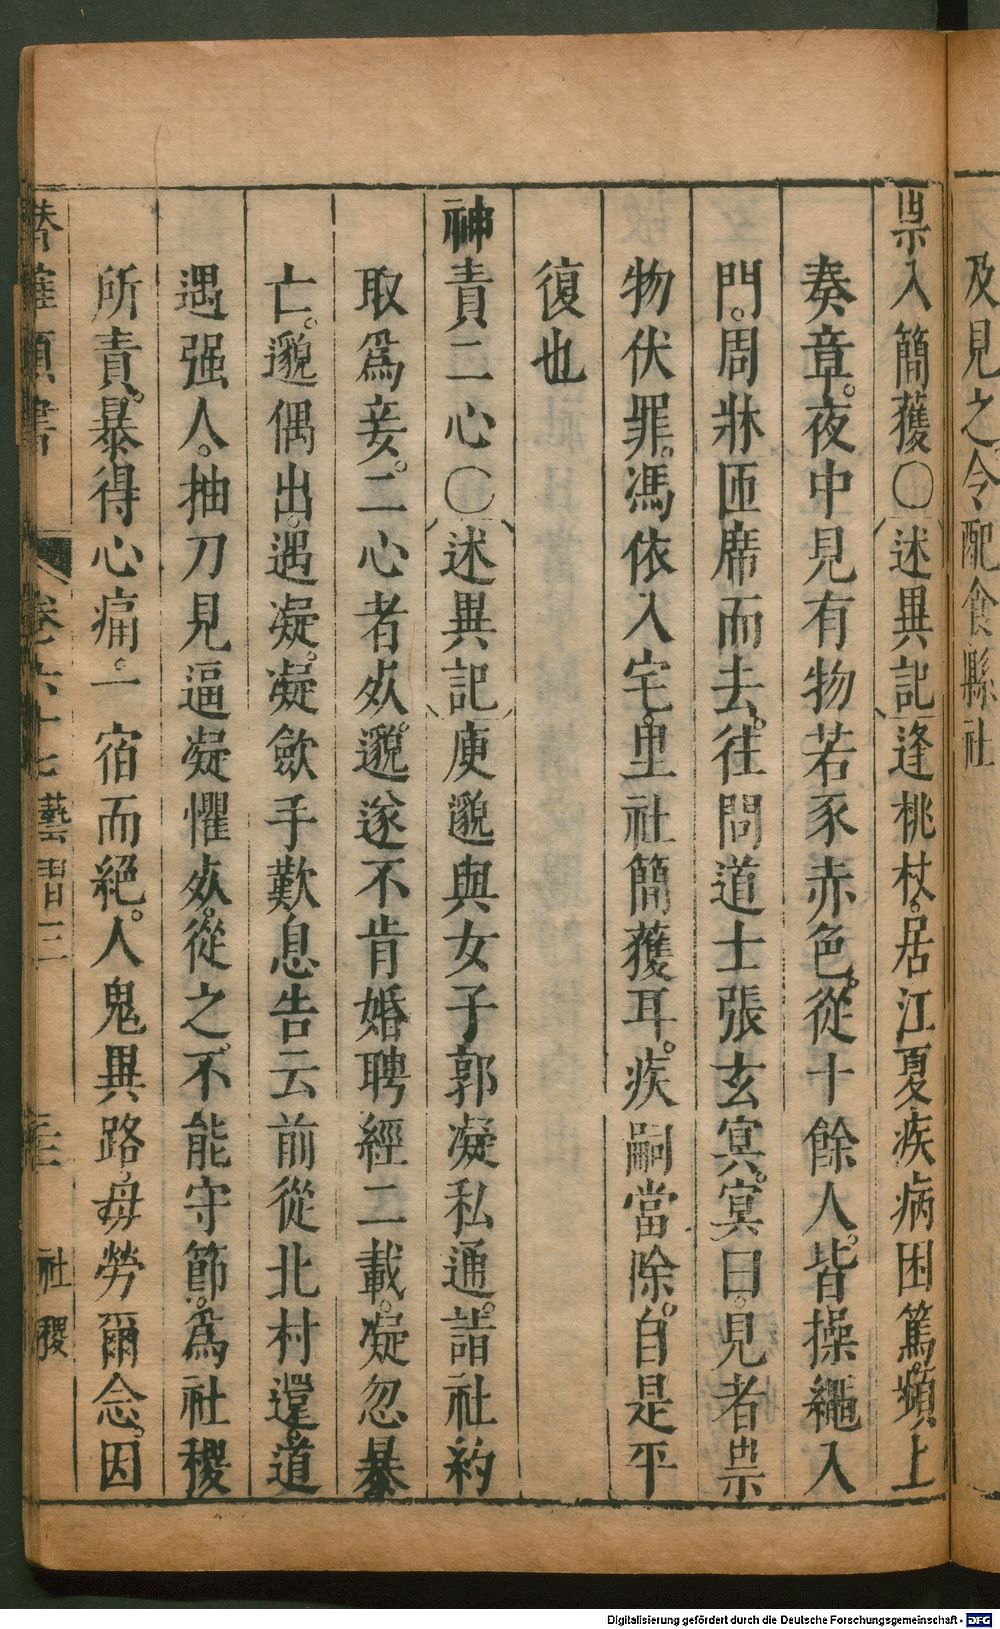 及見之。令配食縣社
祟入簡獲〇述異記逢桃杖。居江夏疾病困篤。頻上
奏章。夜中見有物若豕赤色。從十餘人。皆操繩入
門。周牀匝席而去。往問道士張玄冥。冥曰。見者祟
物伏罪。馮依入宅。里社簡獲耳。疾嗣當除。自是平
復也
神責二心〇述異記庾邈與女子郭凝私通。詣社約
取爲妾。二心者死。邈遂不肯婚聘經二載。凝忽暴
亡。邈偶出。遇凝。凝歛手歎息告云前從北村還。道
遇强人。抽刀見逼凝懼死。從之。不能守節。爲社稷
所責。暴得心痛。一宿而絕。人鬼異路。毋勞爾念。因
潛確類書 卷六十七藝習三 三 社稷
Digitalisierung gefördert durch die Deutsche Forschungsgemeinschaft - DFG